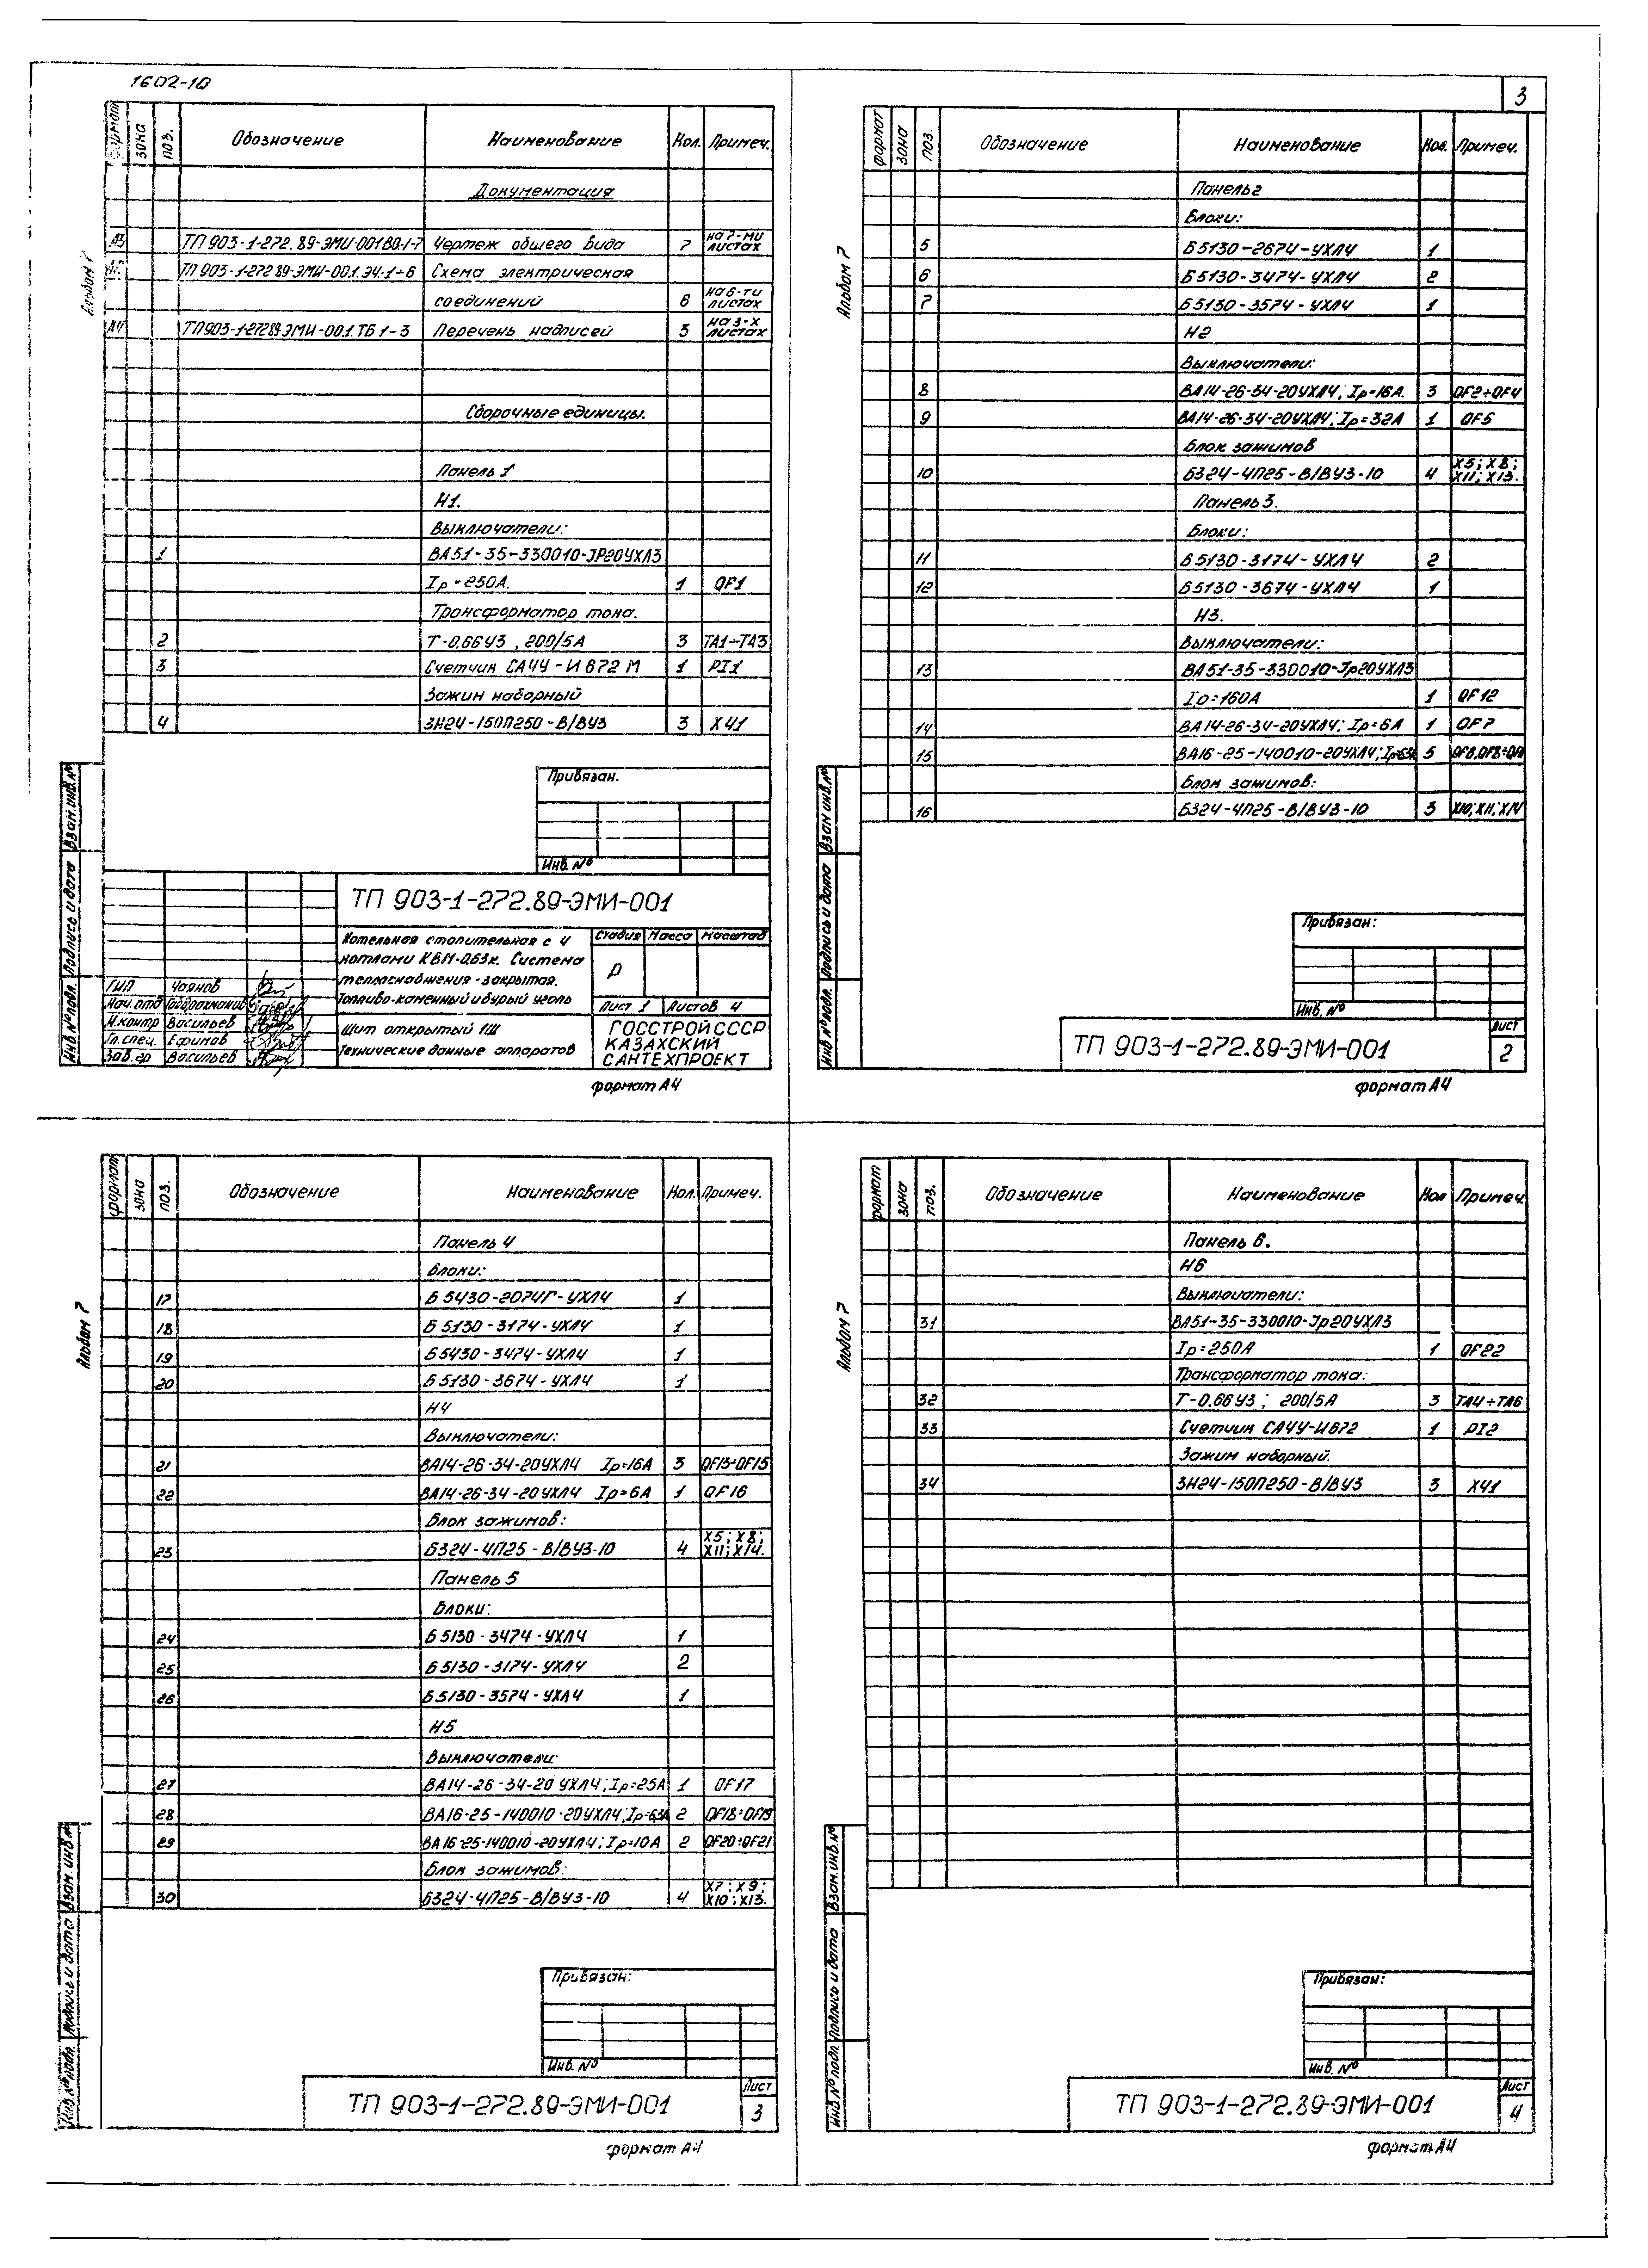 1602-10
3
Альбом 7
формат зона поз. Обозначение Наименование Кол. Примеч.
Документация
А3 ТП 903-1-272.89-ЭМИ-001 ВО-1-7 Чертеж общего вида 7 на 7-ми листах
ТП 903-1-272.89-ЭМИ-001.Э4-1÷6 Схема электрическая
соединений 6 на 6-ти листах
А4 ТП 903-1-272.89 ЭМИ-001.ТБ 1-3 Перечень надписей 3 на 3-х листах
Сборочные единицы.
Панель 1
Н1.
Выключатели:
1 ВА51-35-330010-JР20УХЛ3
Iр=250А. 1 QF1
Трансформатор тока.
2 Т-0.66У3, 200/5А 3 ТА1÷ТА3
3 Счетчик СА4У-И672М 1 PI1
Зажим наборный
4 ЗН24-150П250-В/ВУ3 3 Х41
Привязан.
Инв. №
Взам. инв. №
Подпись и дата
Инв № подл.
ТП 903-1-272.89-ЭМИ-001
Котельная отопительная с 4
котлами КВМ-0.63к. Система
теплоснабжения-закрытая.
Топливо-каменный и бурый уголь
Стадия Масса Масштаб
Р
Лист 1 Листов 4
ГИП Чаянов
Нач. отд
Н.контр Васильев
Гл.спец. Ефимов
Зав. гр Васильев
Щит открытый 1Щ
Технические данные аппаратов
ГОССТРОЙ СССР
КАЗАХСКИЙ
САНТЕХПРОЕКТ
формат А4
Альбом 7
формат зона поз. Обозначение Наименование Кол. Примеч.
Панель 2
Блоки:
5 Б5130-2674-УХЛ4 1
6 Б5130-3474-УХЛ4 2
7 Б5130-3574-УХЛ4 1
Н2
Выключатели:
8 ВА14-26-34-20УХЛ4; Iр=16А. 3 QF2÷QF4
9 ВА14-26-34-20УХЛ4; Iр=32А 1 QF5
Блок зажимов
10 Б324-4П25-В/ВУ3-10 4 Х5; Х8; Х11; Х13.
Панель 3.
Блоки:
11 Б5130-3174-УХЛ4 2
12 Б5130-3674-УХЛ4 1
Н3.
Выключатели:
13 ВА51-35-330010-Jр20УХЛ3
Iр=160А 1 QF12
14 ВА14-26-34-20УХЛ4; Iр=6А 1 QF7
15 ВА16-25-140010-20УХЛ4; 5
Блок зажимов:
16 Б324-4П25-В/ВУ3-10 3 Х10; Х11; Х14
Привязан:
Инв. №
Взам инв. №
Подпись и дата
Инв № подл.
ТП 903-1-272.89-ЭМИ-001
Лист
2
формат А4
Альбом 7
формат зона поз. Обозначение Наименование Кол. Примеч.
Панель 4
Блоки:
17 Б5430-2074Г-УХЛ4 1
18 Б5130-3174-УХЛ4 1
19 Б5430-3474-УХЛ4 1
20 Б5130-3674-УХЛ4 1
Н4
Выключатели:
21 ВА14-26-34-20УХЛ4 Iр=16А 3 QF13÷QF15
22 ВА14-26-34-20УХЛ4 Iр=6А 1 QF16
Блок зажимов:
23 Б324-4П25-В/ВУ3-10 4 Х5; Х8; Х11; Х14.
Панель 5
Блоки:
24 Б5130-3474-УХЛ4 1
25 Б5130-3174-УХЛ4 2
26 Б5130-3574-УХЛ4 1
Н5
Выключатели:
27 ВА14-26-34-20УХЛ4; Iр=25А 1 QF17
28 ВА16-25-140010-20УХЛ4; 2 QF18÷QF19
29 ВА16-25-140010-20УХЛ4; Iр=10А 2 QF20÷QF21
Блок зажимов:
30 Б324-4П25-В/ВУ3-10 4 Х7; Х9; Х10; Х13.
Привязан:
Инв. №
Взам. инв. №
Подпись и дата
Инв. № подл.
ТП 903-1-272.89-ЭМИ-001
Лист
3
формат А4
Альбом 7
формат зона поз. Обозначение Наименование Кол Примеч.
Панель 6.
Н6
Выключатели:
31 ВА51-35-330010-Jр20УХЛ3
Iр=250А 1 QF22
Трансформатор тока:
32 Т-0.66У3; 200/5А 3 ТА4÷ТА6
33 Счетчик СА4У-И672 1 PI2
Зажим наборный.
34 ЗН24-150П250-В/ВУ3 3 Х41
Привязан:
Инв. №
Взам. инв. №
Подпись и дата
Инв. № подл.
ТП 903-1-272.89-ЭМИ-001
Лист
4
формат А4